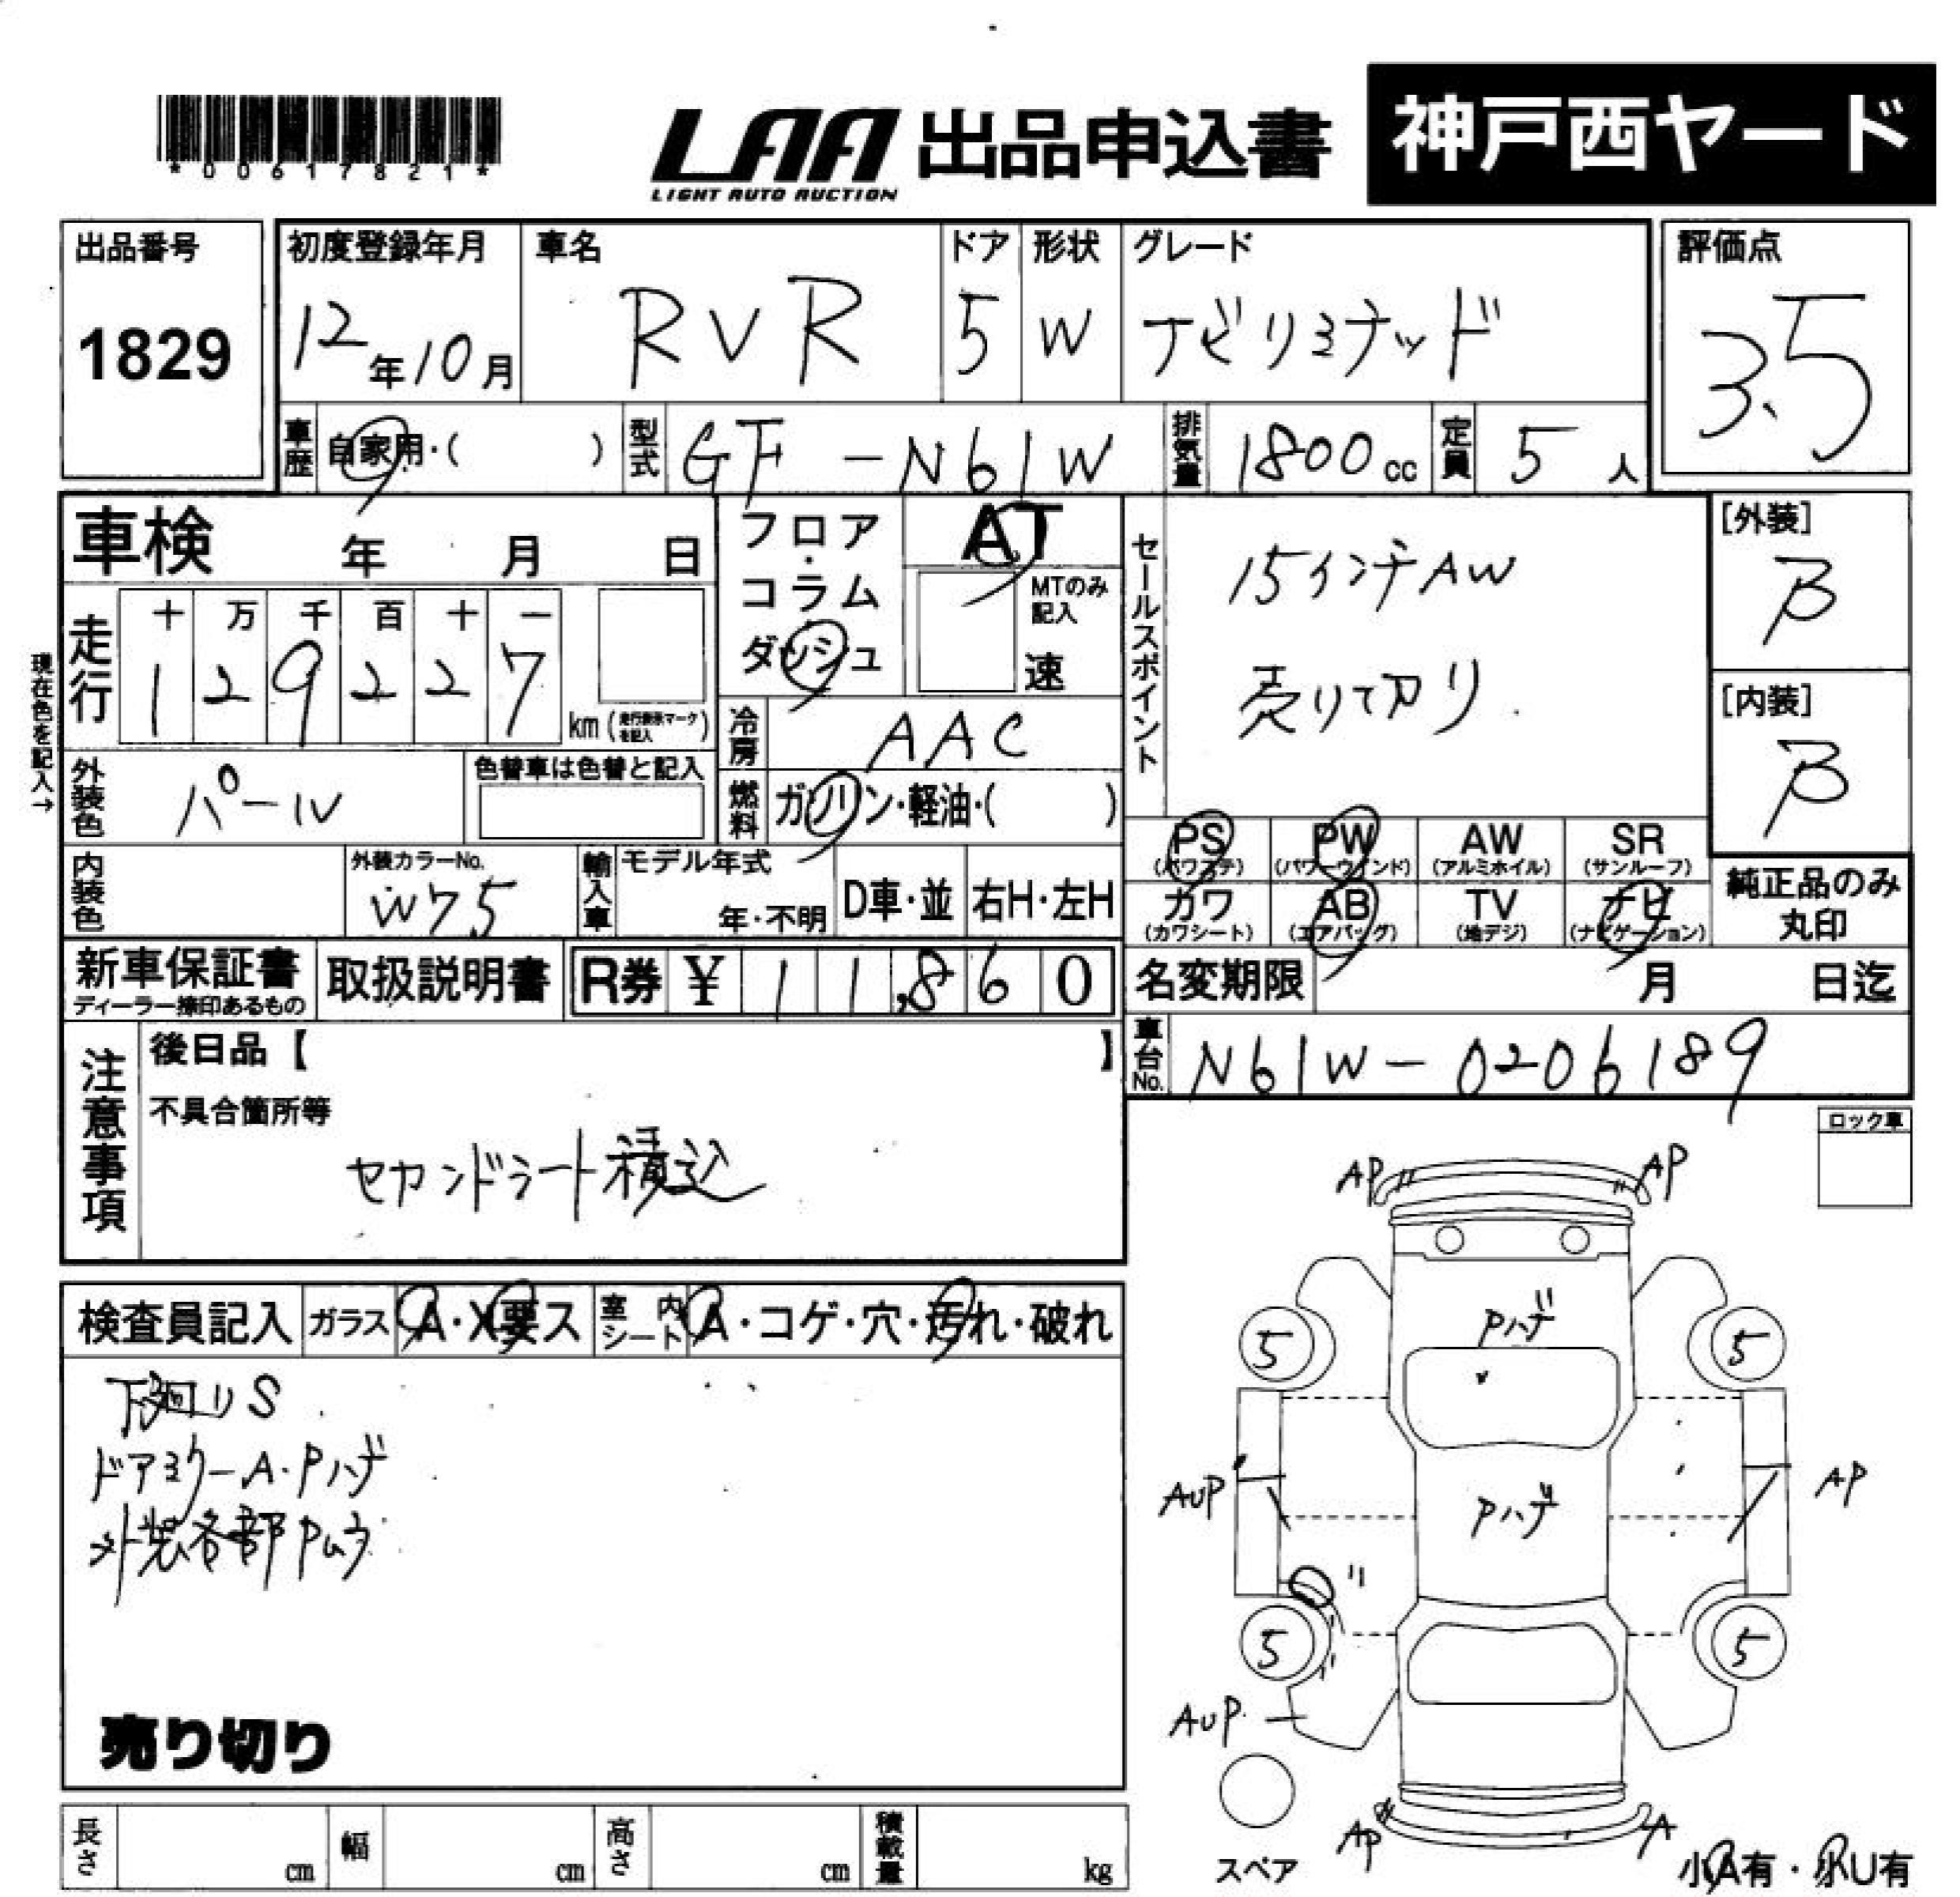 *00617821*
LAA 出品申込書 神戸西ヤード
LIGHT AUTO AUCTION
出品番号
1829
初度登録年月
12年10月
車名
RVR
ドア
5
形状
W
グレード
ナビリミテッド
評価点
3.5
車歴 自家用・( )
型式 GF-N61W
排気量 1800cc
定員 5人
車検 年 月 日
現在色を記入→
走行
十 万 千 百 十 一
1 2 9 2 2 7
km(走行表示マークを記入)
フロア・コラム
ダッシュ
AT
MTのみ記入
速
冷房 AAC
燃料 ガソリン・軽油・( )
セールスポイント
15インチAW
売り切り
[外装]
B
[内装]
B
外装色 パール
色替車は色替と記入
内装色
外装カラーNo.
W75
輸入車 モデル年式
年・不明
D車・並 右H・左H
PS (パワステ)
PW (パワーウインド)
AW (アルミホイル)
SR (サンルーフ)
カワ (カワシート)
AB (エアバッグ)
TV (地デジ)
ナビ (ナビゲーション)
純正品のみ丸印
新車保証書
ディーラー捺印あるもの
取扱説明書
R券 ¥ 11,860
名変期限 月 日迄
車台No. N61W-0206189
注意事項
後日品【 】
不具合箇所等
セカンドシート積込
ロック車
検査員記入 ガラス A・X要ス 室内シート A・コゲ・穴・汚れ・破れ
下廻りS
ドアミラーA・Pハゲ
外装各部Pムラ
売り切り
AP AP
Pハゲ
5 5
AUP Pハゲ AP
5 5
AUP
AP A
スペア
小A有・小U有
長さ cm 幅 cm 高さ cm 積載量 kg